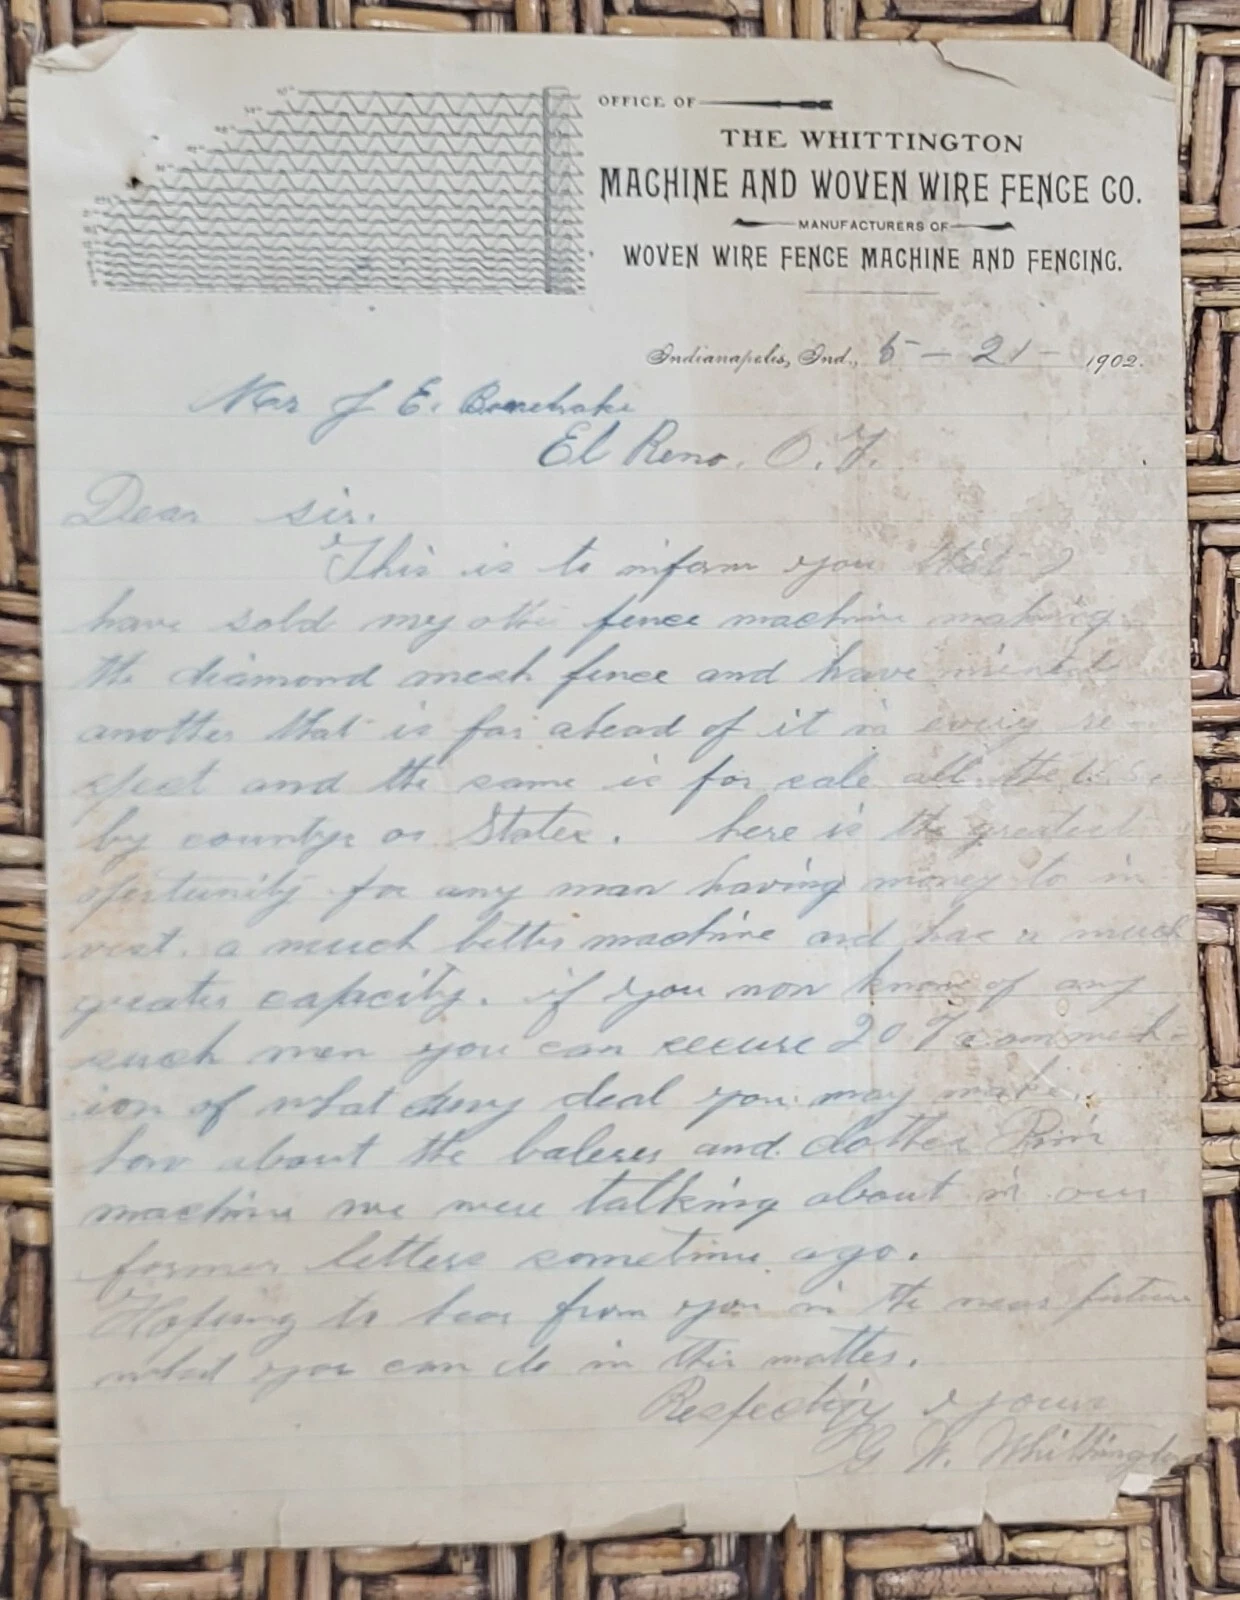 OFFICE OF
THE WHITTINGTON
MACHINE AND WOVEN WIRE FENCE CO.
MANUFACTURERS OF
WOVEN WIRE FENCE MACHINE AND FENCING.
Indianapolis, Ind., 5 - 21 - 1902.
J E. Bonebrake
El Reno, O. T.
Dear sir.
This is to inform you that I
have sold my othe fence machine making
the diamond mesh fence and have
another that is far ahead of it in every re-
spect and the same is for sale all the U.S.
by countys or States. here is the greatest
opertunity for any man having money to in
vest. a much better machine and has a much
greater capacity. if you now know of any
such men you can secure 20 % commish-
ion of what any deal you may make.
how about the balers and clothes Pin
machine we were talking about in our
former letters sometime ago.
Hoping to hear from you in the near future
what you can do in this matter.
yours
G W. Whittington